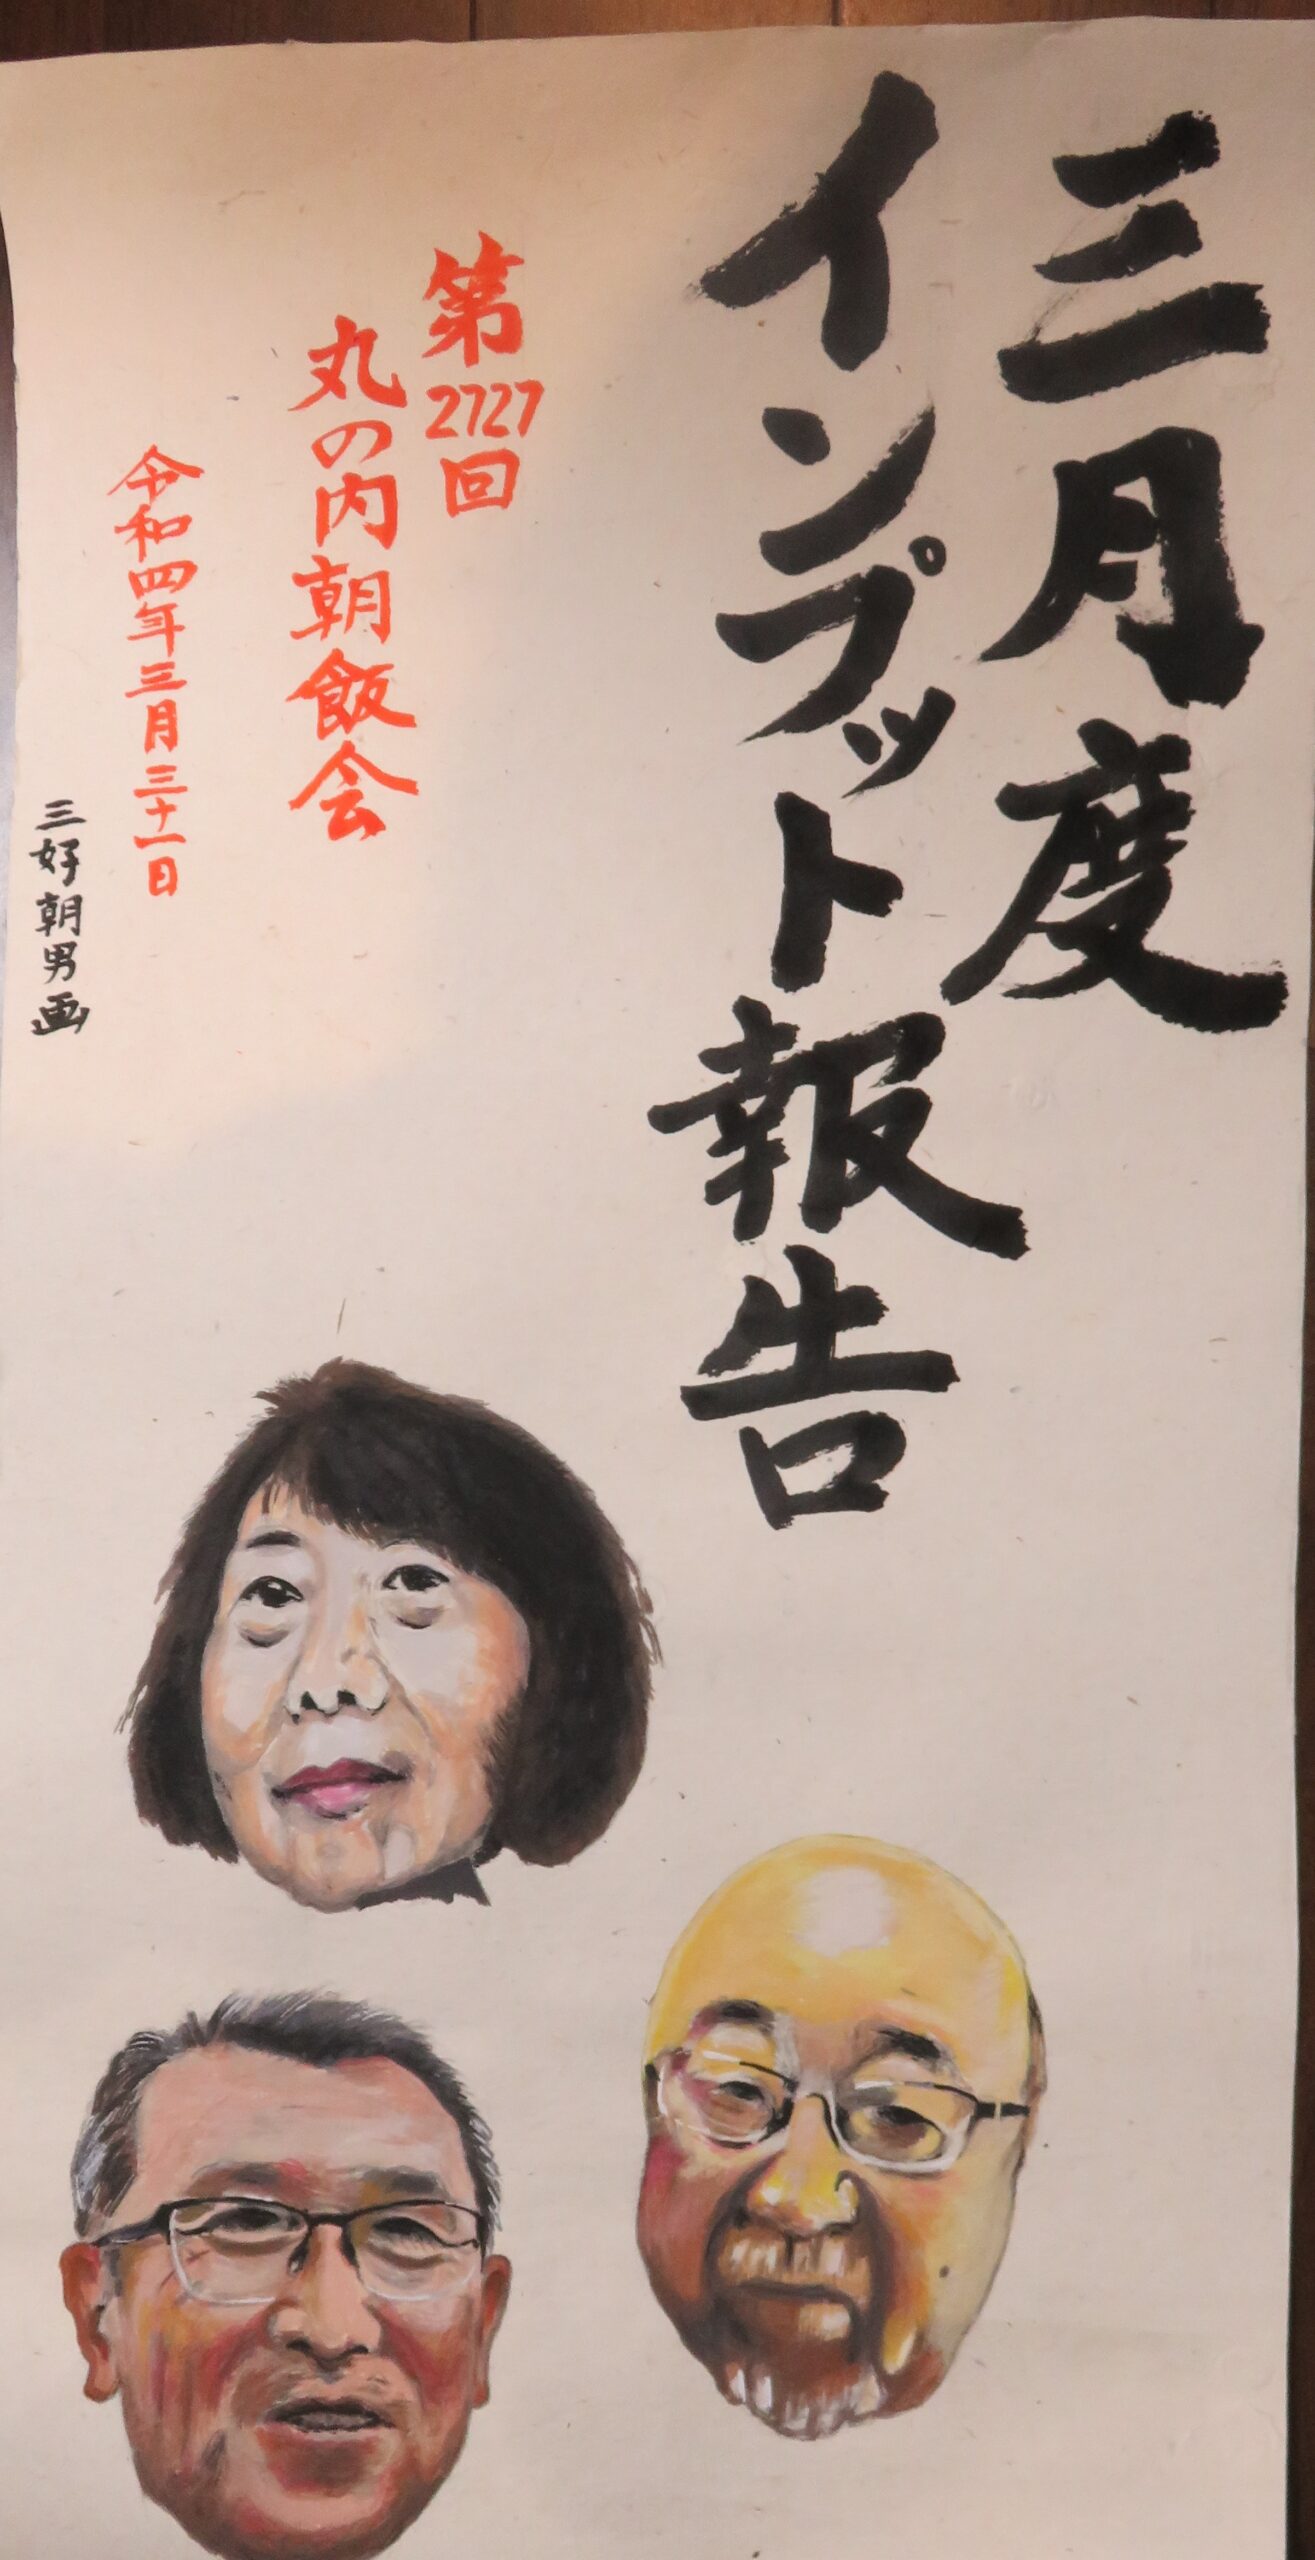 三月度
インプット報告
第2727回
丸の内朝飯会
令和四年三月三十一日
三好朝男画